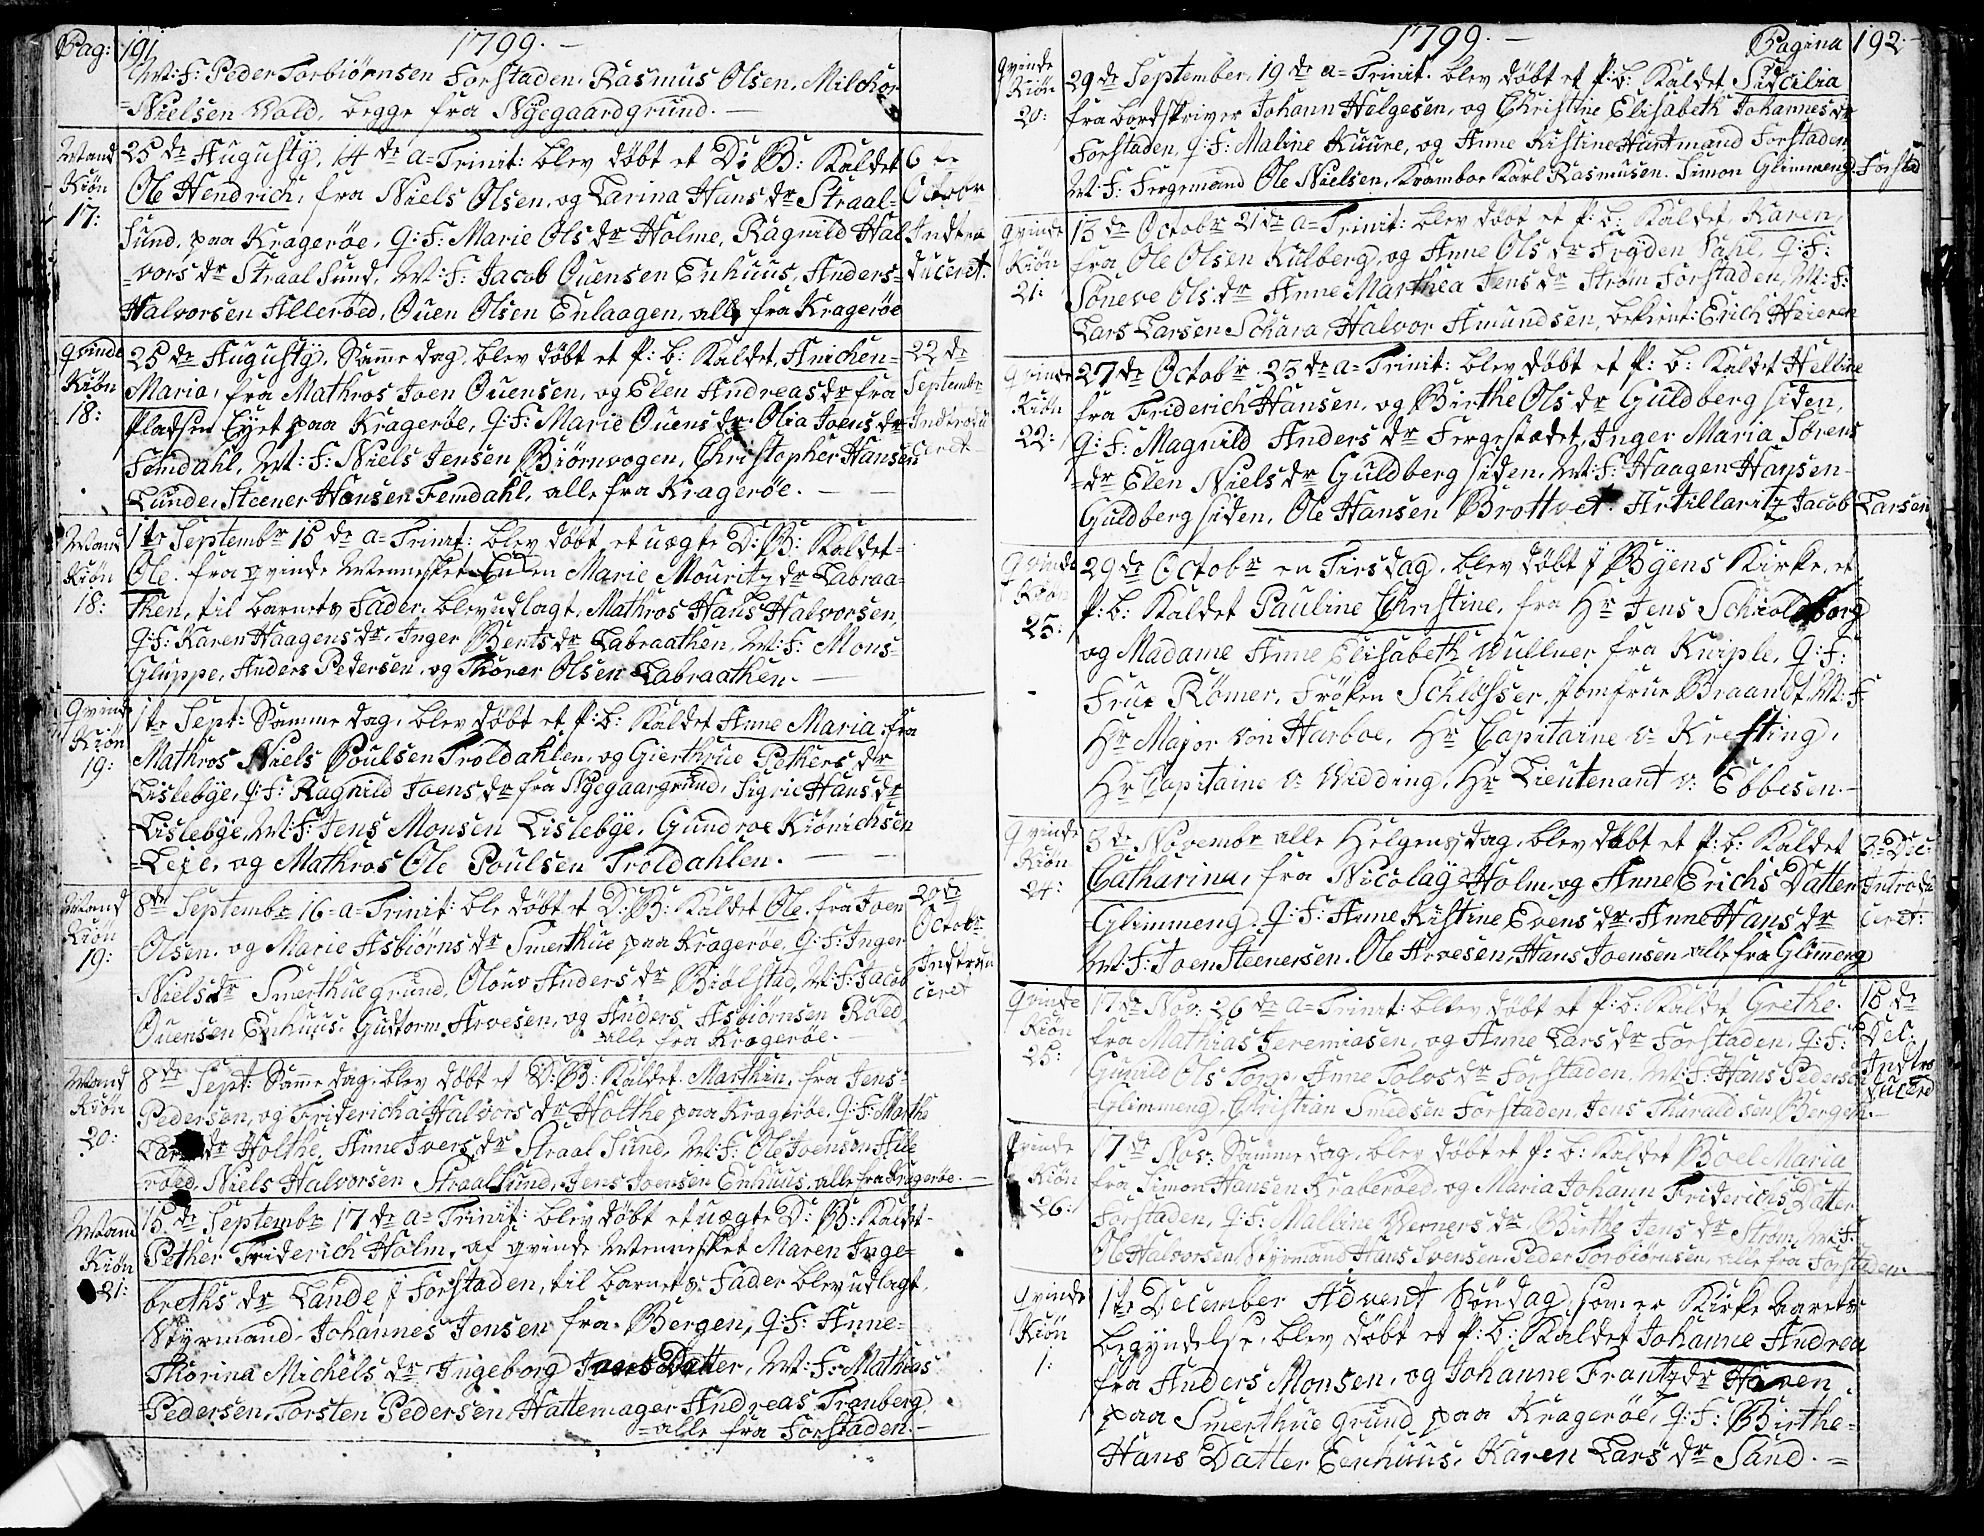 Pag: 191 1799. –
M: F: Peder Torbiørnsen Forstaden. Rasmus Olsen, Milchor
Nielsen Wold, begge fra Nÿegaardgrund. –
Mand Kiøn 17:
25 de Augustÿ, 14 de a= Trinit: blev døbt et D: B: Kaldet
Ole Hendrich, fra Niels Olsen, og Larina Hans dr Straal=
Sund, paa Kragerøe, Q: F: Marie Ols dr Holme, Ragnild Hal
=vors dr Straal Sund, M: F: Jacob Ouensen Enhuus, Anders=
Halvorsen Allerøed, Ouen Olsen Enlaagen, alle fra Kragerøe
6 te
Octobr
Indtro
duceret.
Qvinde Kiøn 18:
25 de Augustÿ, Samme dag, blev døbt et P: b: Kaldet, Anichen=
Maria, fra Mathros Joen Ouensen, og Elen Andreas dr fra
Pladsen Eyet paa Kragerøe, Q: F: Marie Ouens dr Olia Joens dr
Femdahl, M: F: Niels Jensen Biørnvogen, Christopher Hansen
Lunde, Steener Hansen Femdahl, alle fra Kragerøe. –
22 de
Septembr
Indtrodu
ceret
Mand Kiøn 18:
1 te Septembr 15 de a= Trinit: blev døbt et uægte D: B: Kaldet=
Ole. fra qvinde Mennesket Marie Mouritz dr Labraa=
then, til barnets Fader, blev udlagt, Mathros Hans Halvorsen,
Q: F: Karen Haagens dr, Inger Bents dr Labraathen, M: F: Mons=
Gluppe, Anders Pedersen, og Thorer Olsen Labraathen. –
Qvinde Kiøn 19:
1 te Sept: Samme dag, blev døbt et P: b: Kaldet Anne Maria, fra
Mathros Niels Poulsen Troldahlen, og Gierthrue Pethers dr
Lislebÿe, Q: F: Ragnild Joens dr fra Nÿegaargrund, Sigrie Hans dr
Lislebÿe, M: F: Jens Monsen Lislebÿe, Gundroe Kiønichsen
=Leje, og Mathros Ole Poulsen Troldahlen. –
Mand Kiøn 19:
8 de Septembr 16 = a= Trinit: ble døbt et D: B: Kaldet Ole. fra Joen
Olsen, og Marie Asbiørns dr Smerthue paa Kragerøe, Q: F: Inger
Niels dr Smerthuegrund, Olouv Anders dr Biølstad, M: F: Jacob
Ouensen Enhuus, Gudtorm Arvesen, og Anders Asbiørnsen Røed,
alle fra Kragerøe. –
20 de
Octobr
Indtrodu
ceret
Mand Kiøn 20:
8 de Sept: Samme dag, blev døbt et D: B: Kaldet. Marthin, fra Jens=
Pedersen, og Fridericha Halvors dr Holthe paa Kragerøe, Q: F: Marthe
Lars dr Holthe, Anne Ivers dr Straal Sund, M: F: Ole Joensen Alle
røed, Niels Halvorsen Straal Sund, Jens Joensen Enhuus, alle fra Kragerøe. –
Mand Kiøn 21:
15 de Septembr 17 de a= Trinit: blev døbt et uægte D: B: Kaldt=
Pether Friderich Holm, af qvinde Mennisket Maren Inge=
breths dr Lande i Forstaden, til barnets Fader blev udlagt
Stÿrmand Johannes Jensen fra Bergen, Q: F: Anne=
Thorina Michels dr Ingeborg Datter, M: F: Mathias
Pedersen, Torsten Pedersen, Hattemager Andreas Tronberg
=alle fra Forstaden. –
1799. – Pagina 192
Qvinde Kiøn 20:
29 de September, 19 de a= Trinit. blev døbt et P: b: Kaldet Sidcilia
fra bordskriver Johann Helgesen, og Christine Elisabeth Johannes dr
Forstaden, Q: F: Maline Kuure, og Anne Kistine Hartmand Forstaden
M: F: Fergemand Ole Nielsen, Kramboe Karl Rasmusen. Simon Glimmeng Forstad
Qvinde Kiøn 21:
13 de Octobr 21 de a= Trinit: blev døbt et P: b: Kaldet, Karen,
fra Ole Olsen Kulberg, og Anne Ols dr Frÿden Dahl, Q: F:
Søneve Ols dr Anne Marthea Jens dr Strøm Forstaden, M: F:
Lars Larsen Schara, Halvor Amundsen, Erich Heieren
Qvinde Kiøn 22:
27 de Octobr 23 de a= Trinit: blev døbt et P: b: Kaldet Helline
fra Friderich Hansen, og Birthe Ols dr Guldberg siden,
Q: F: Magnild Anders dr Fergestædet, Inger Maria Sørens
=dr Elen Niels dr Guldberg siden, M: F: Haagen Hansen=
Guldberg siden, Ole Hansen Brottvet. Artillaritz Jacob Larsen
Qvinde Kiøn 23:
29 de Octobr en Tirsdag, blev døbt i Bÿens Kirke, et
P: b: Kaldet Pauline Christine, fra Hr Jens Schioldborg
og Madame Anne Elisabeth Wullner fra Kniple, Q: F:
Frue Römer, Frøken Schlösser, Jomfrue Braandt, M: F:
Hr Major von Harboe, Hr Capitaine v: Krefting,
Hr Capitaine v: Wedding, Hr Lieutenant v: Ebbesen. –
Qvinde Kiøn 24:
3 de Novembr alle Helgens dag, blev døbt et P: b: Kaldet
Catharina, fra Nicolaÿ Holm, og Anne Erichs Datter
Glimmeng. Q: F: Anne Kistine Evens dr Anne Hans dr
M: F: Joen Steenersen. Ole Arvesen, Hans Joensen alle fra Glimmeng
3= Dec:
Introdu
ceret:
Qvinde Kiøn 25:
17 de Nov: 26 de a= Trinit: blev døbt et P: b: Kaldet Grethe.
fra Mathias Jeremiasen, og Anne Lars dr Forstaden, Q: F:
Gunild Ols Torp, Anne Tolvs dr Forstaden, M: F: Hans Pedersen
Glimmeng, Christian Smedsen Forstaden, Jens Tharaldsen Bergen. –
15 de
Dec:
Indtro
ducerd
Qvinde Kiøn 26:
17 de Nov: Samme dag, blev døbt et P: b: Kaldet Boel Maria
fra Simon Hansen Kraberøed, og Maria Johann Friderichs Datter
Forstaden, Q: F: Malline Werners dr, Birthe Jens dr Strøm, M: F:
Ole Halvorsen, Stÿrmand Hans Svensen, Peder Torbiørnsen, alle fra Forstaden
Qvinde Kiøn 1:
1 te December Advent Søndag, som er Kirke Aarets
begÿndelse, blev døbt et P: b: Kaldet Johanne Andrea
fra Anders Monsen, og Johanne Frantz dr Haven
paa Smerthue grund paa Kragerøe, Q: F: Birthe=
Hans Datter Eenhuus, Karen Lars dr Sand. =